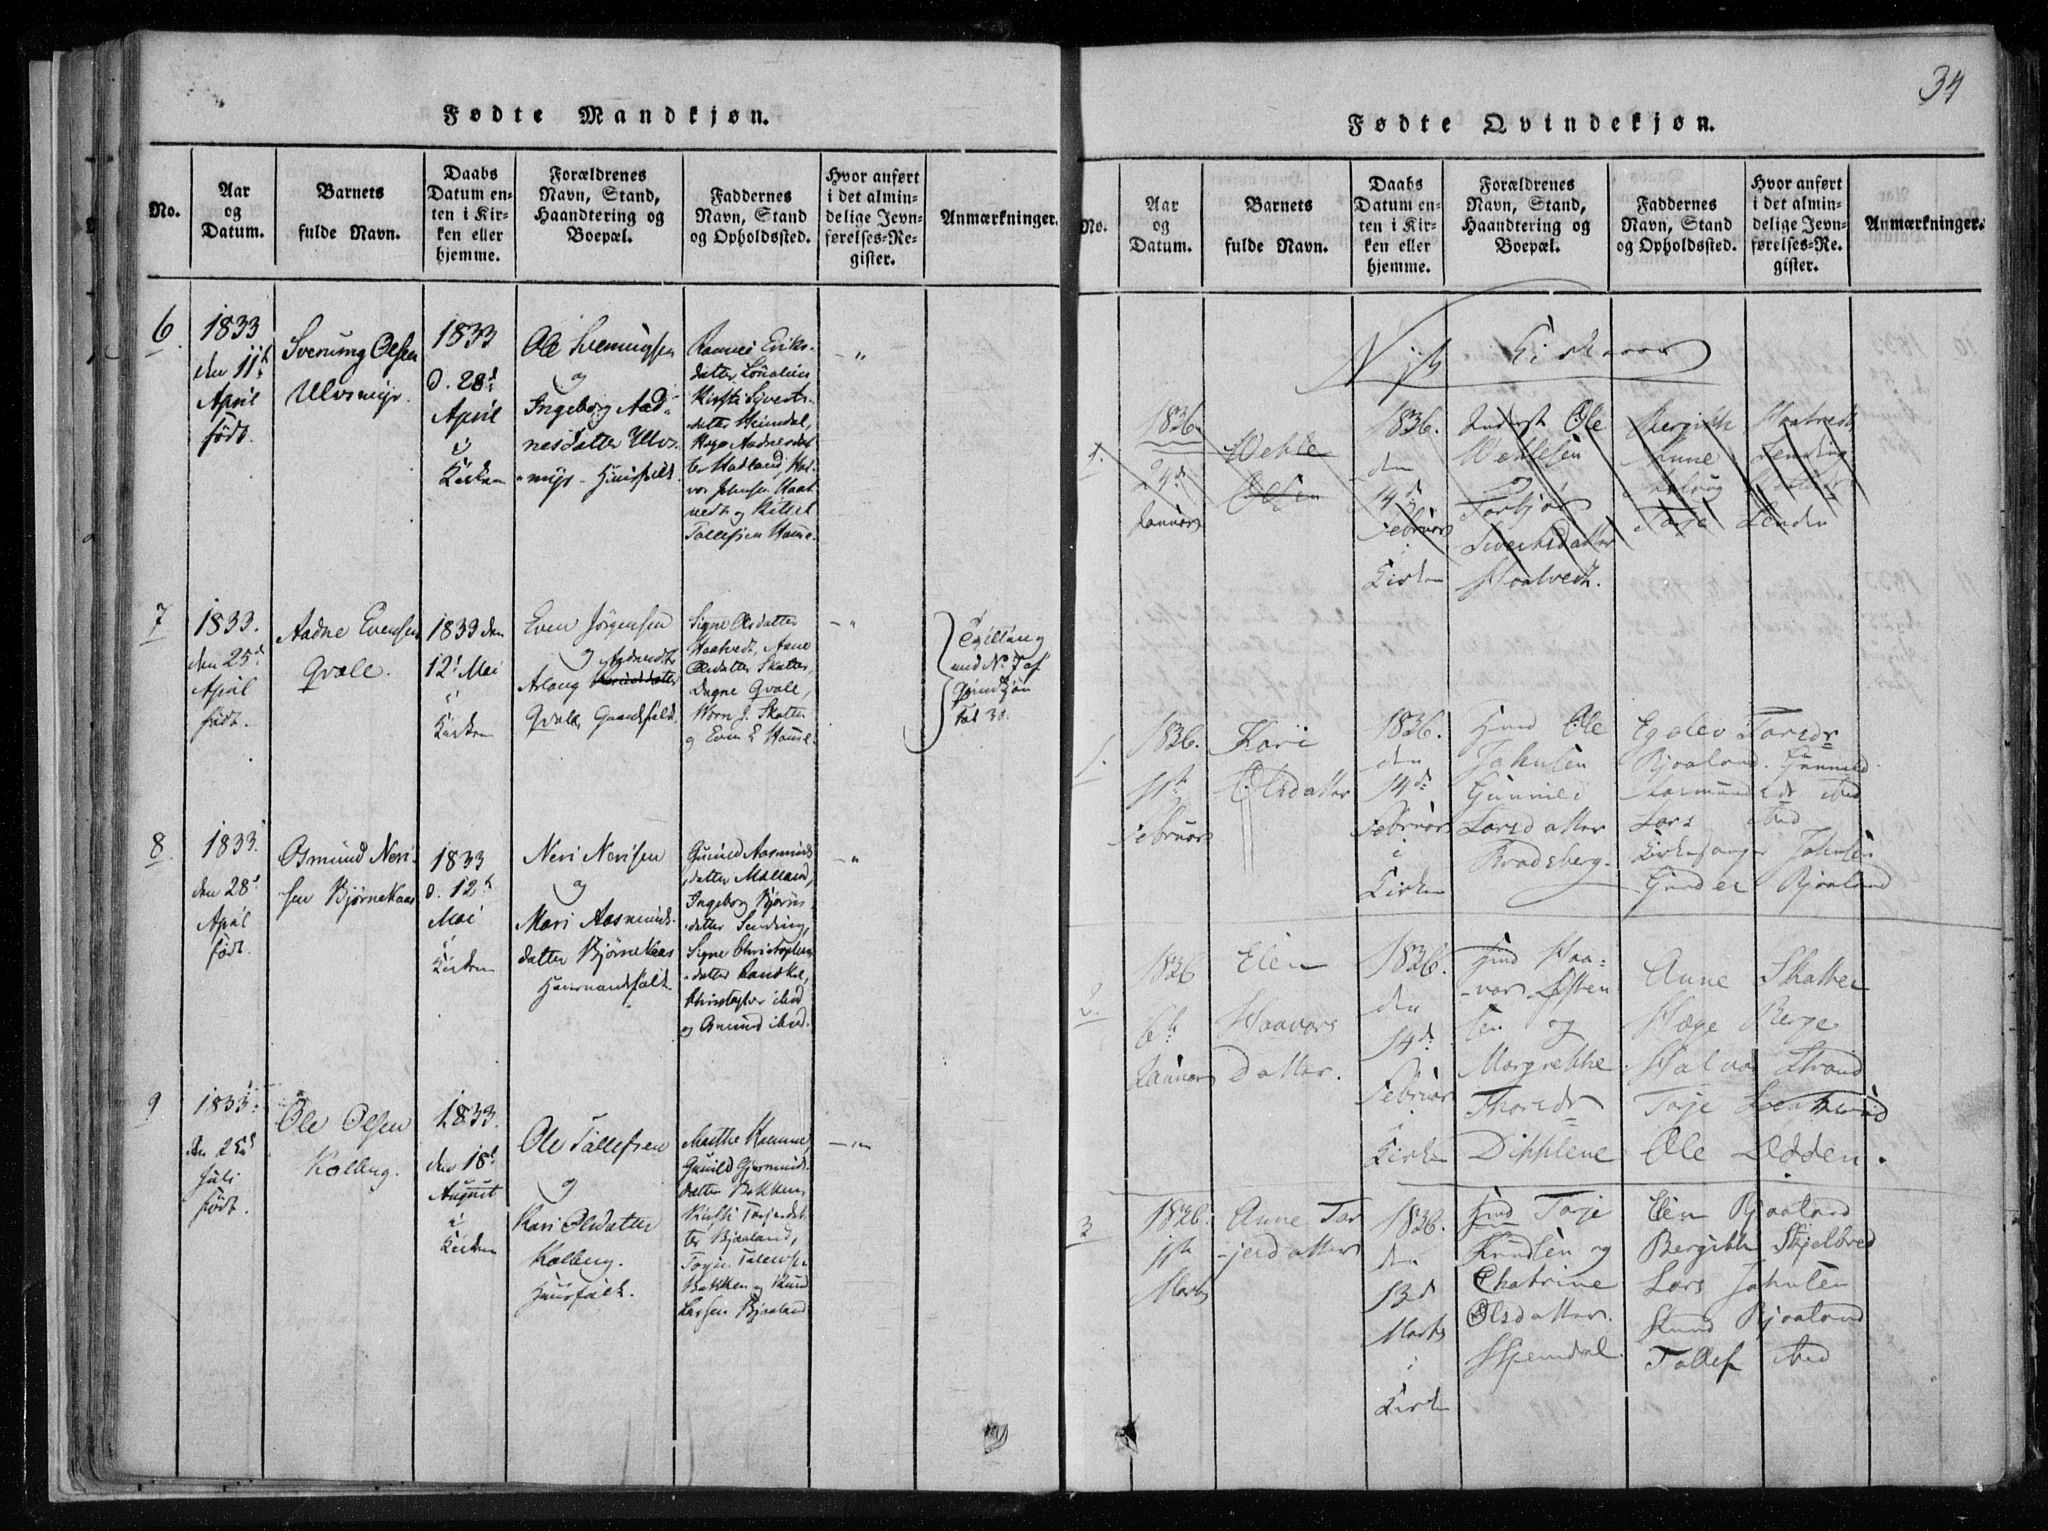 Fødte Mandkjøn.
No.
Aar
og
Datum.
Barnets
fulde Navn.
Daabs
Datum en-
ten i Kir-
ken eller
hjemme.
Forældrenes
Navn, Stand,
Haandtering og
Boepæl.
Faddernes
Navn, Stand
og Opholdssted.
Hvor anført
i det almin-
delige Jevn-
førelses-Re-
gister.
Anmærkninger.
6
1833
den 11te
April
født.
Sveinung Olsen
Ulvsmyr.
1833
d. 28d
April
i
Kirken
Ole Svenungsen
og
Ingeborg Aad-
nesdatter Ulvs-
myr - Huusfolk.
Eriks-
datter
Kirsti Sjverts-
datter Heimdal,
Aadnesdat
ter Hadland, Hal-
vor Johnsen Haat
vedt og Kittel
Tollefsen
7
1833.
den 25d
April
født.
Aadne Evensen
Qvale.
1833 den
12t Mai
i
Kirken
Even Jørgensen
og
Aslaug
Qvale, Gaardfolk.
Signe Olsdatter
Haatvedt, Anne
Olsdatter Skatter,
Dagne Qvale,
J. Skatter
og Even
Tvilling
med No. 7 af
Qvindkjøn
Fol 30.
8
1833
den 28d
April
født
Osmund Neri-
sen Bjørnekaas
1833
d. 12t
Mai
i
Kirken
Neri Nerisen
og
Mari Aasmunds-
datter Bjørnekaas
Huusmandsfolk
Gunild Aasmunds-
datter
Ingeborg Bjørns
datter Sending,
Signe Christophers
datter
Christopher ibid
og Osmund ibid.
9
1833.
den 25d
Juli
født.
Ole Olsen
Kolberg.
1833.
den 18d
August
i
Kirken
Ole Tollefsen
og
Kari Olsdatter
Kolberg.
Huusfolk.
Marthe
Gunild Gjermunds-
datter Bakken,
Kirsti Torjersdat
ter Bjaaland,
Bakken og Knud
Larsen Bjaaland
34
Fødte Qvindekjøn.
No.
Aar
og
Datum.
Barnets
fulde Navn.
Daabs
Datum en-
ten i Kir-
ken eller
hjemme.
Forældrenes
Navn, Stand,
Haandtering og
Boepæl.
Faddernes
Navn, Stand
og Opholdssted.
Hvor anført
i det almin-
delige Jevn-
førelses-Re-
gister.
Anmærkninger.
Nyt Kirkeaar
1.
1836.
24d
Januar
Wetle
Olsen
1836.
den
14d
Februar
i
Kirken
Inderst Ole
Wetlesen
Torbjør
Sivertsdatter
Haatvedt.
Bergith Haatvedt
Anne Sending
Aslaug
Torje Lenden
1.
1836.
11te
Februar
Kari
Olsdatter
1836.
den
14d
Februar
i
Kirken
Hmd Ole
Johnsen
Gunnild
Larsdatter
Bradsberg.
Egelev Torsdr
Bjaaland. Gunnild
Aasmunddr ibid
Lars ibid
Kirkesanger Johnsen
Gunder Bjaaland
2.
1836
6te
Januar
Elen
Haavors
Datter.
1836.
den
14d
Februar
i
Kirken
Hmd Haa-
vor
sen og
Margrethe
Thorsdr
Dipplene
Anne Skatter
Hæge Berge
Halvor Strand
Torje
Ole Ødden.
3
1836.
1ste
Marts
Anne Tor
-jersdatter
1836.
den
13d
Marts
i
Kirken
Hmd Torje
Knudsen og
Chatrine
Olsdatter.
Elen Bjaaland
Bergith Skjelbred
Lars Johnsen
Knud Bjaaland
Tollef ibid